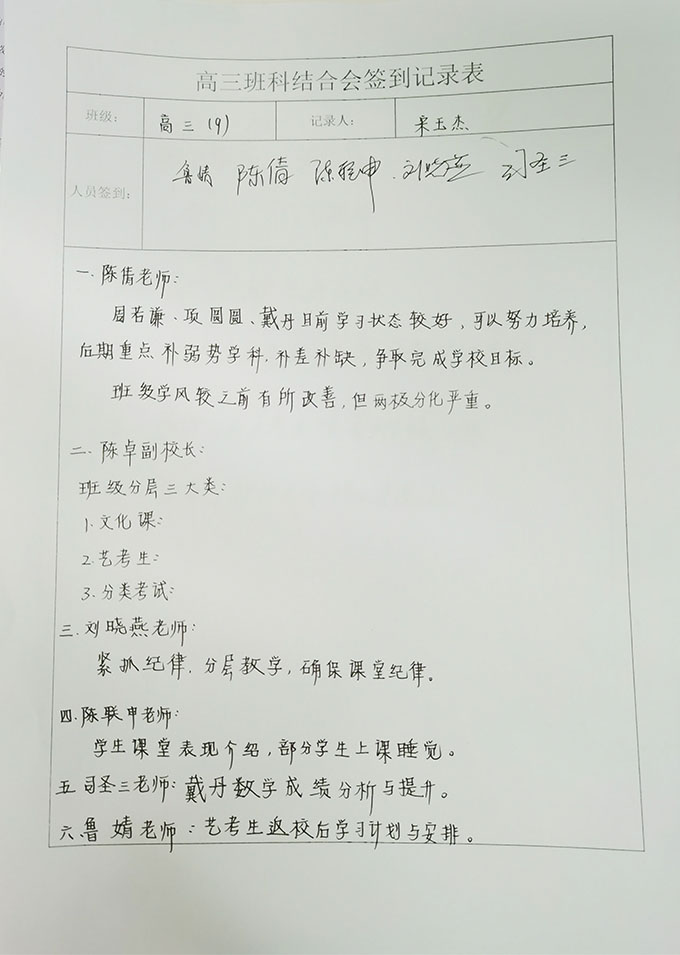 高三班科结合会签到记录表
班级： 高三（9） 记录人： 宋玉杰
人员签到： 鲁婧 陈倩 陈联申 刘晓燕 司圣三
一、陈倩老师：
周若谦、项圆圆、戴丹目前学习状态较好，可以努力培养，
后期重点补弱势学科，补差补缺，争取完成学校目标。
班级学风较之前有所改善，但两极分化严重。
二、陈卓副校长：
班级分层三大类：
1.文化课：
2.艺考生：
3.分类考试：
三、刘晓燕老师：
紧抓纪律，分层教学，确保课堂纪律。
四.陈联申老师：
学生课堂表现介绍，部分学生上课睡觉。
五 司圣三老师：戴丹数学成绩分析与提升。
六鲁婧老师：艺考生返校后学习计划与安排。